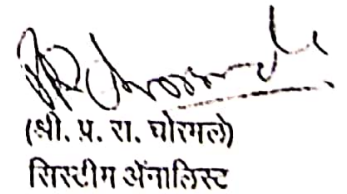 (श्री. प्र. रा. घोरमले)
सिस्टीम ॲनालिस्ट